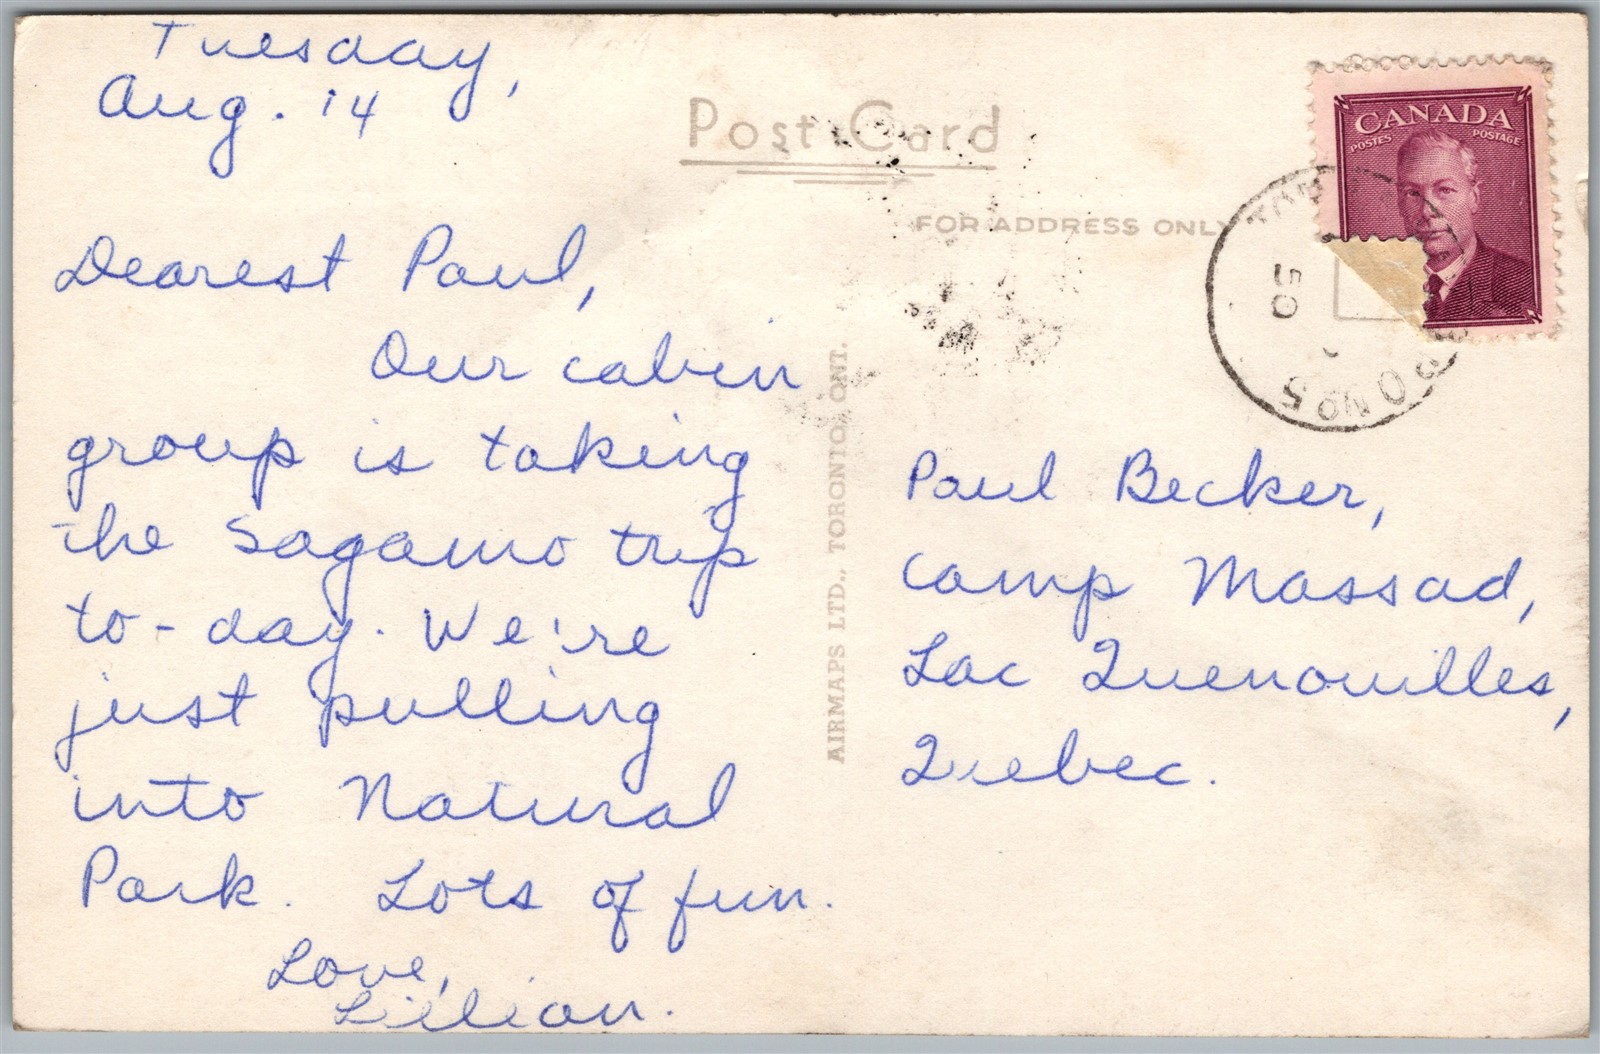 Tuesday,
Aug. 14
Dearest Paul,
Our cabin
group is taking
the Sagamo trip
to-day. We're
just pulling
into Natural
Park. Lots of fun.
Love,
Lillian.
Post Card
FOR ADDRESS ONLY
AIRMAPS LTD., TORONTO, ONT.
CANADA
POSTES POSTAGE
50
Paul Becker,
Camp Massad,
Lac Quenouilles,
Quebec.